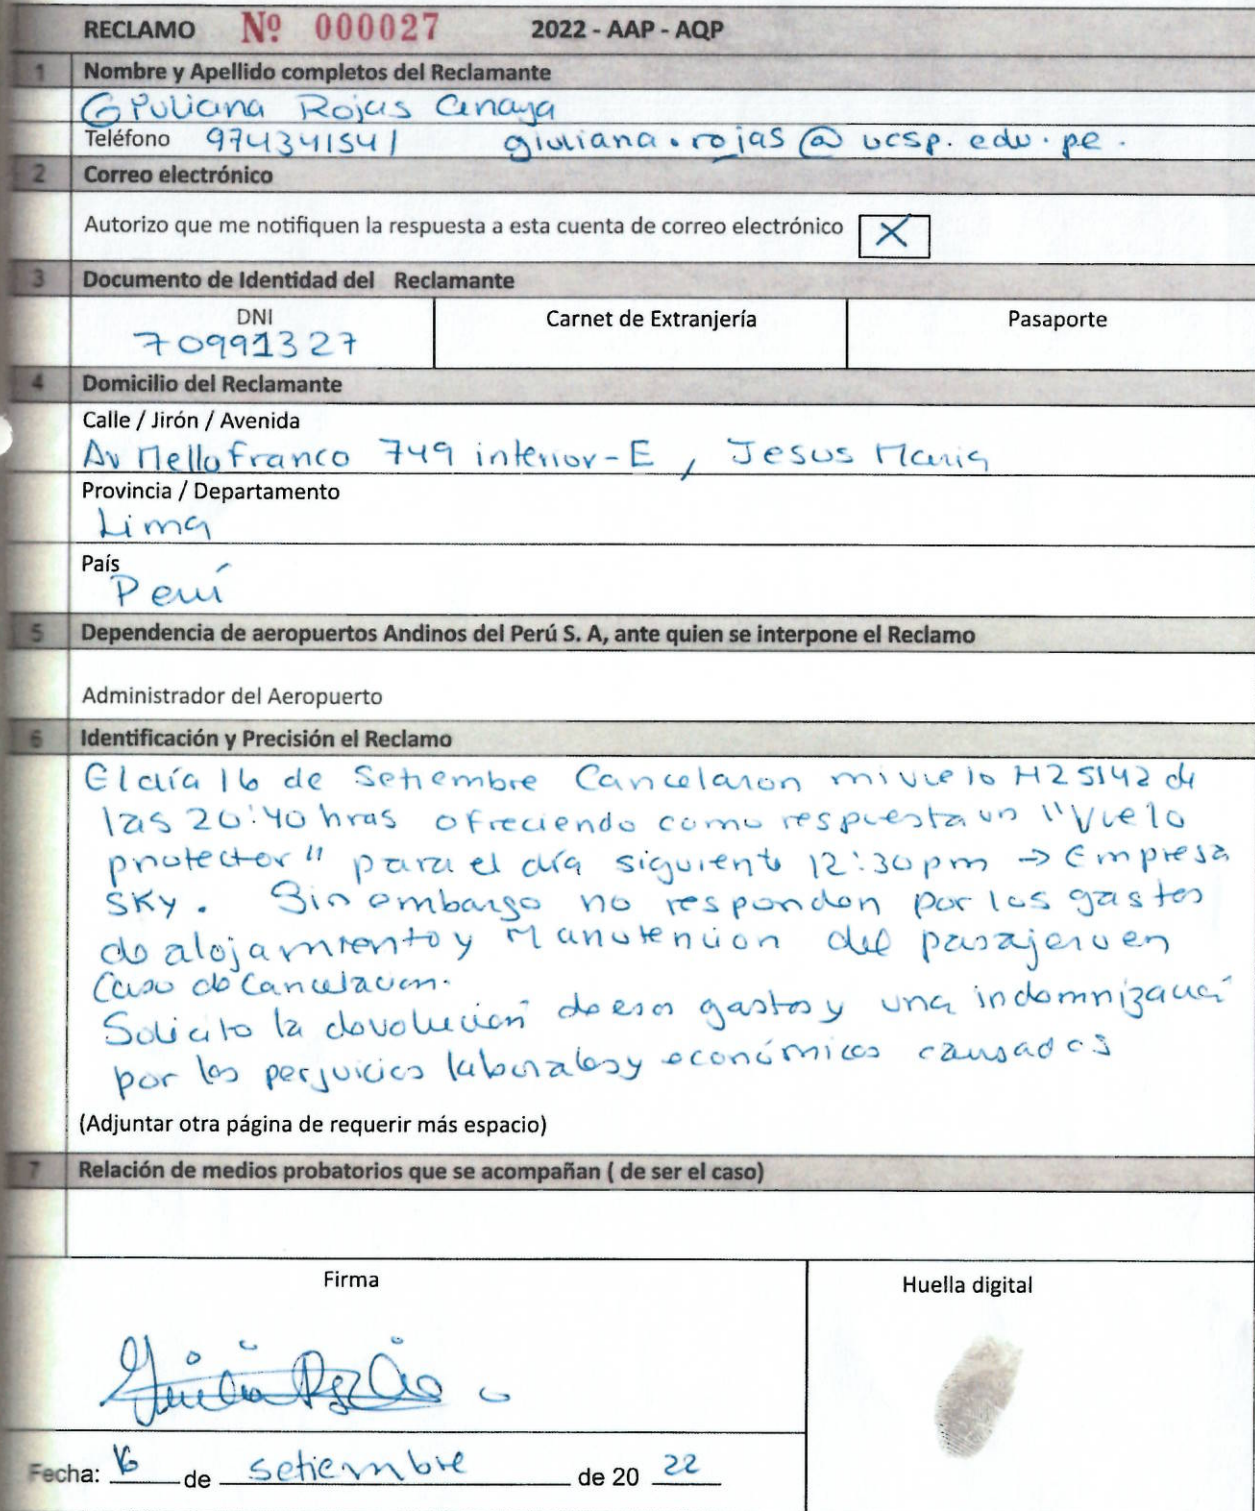 RECLAMO Nº 000027 2022 - AAP - AQP
1 Nombre y Apellido completos del Reclamante
Giuliana Rojas Anaya
Teléfono 974341541 giuliana.rojas@ucsp.edu.pe.
2 Correo electrónico
Autorizo que me notifiquen la respuesta a esta cuenta de correo electrónico X
3 Documento de Identidad del Reclamante
DNI Carnet de Extranjería Pasaporte
70991327
4 Domicilio del Reclamante
Calle / Jirón / Avenida
Av Mello Franco 749 interior-E, Jesus Maria
Provincia / Departamento
Lima
País
Perú
5 Dependencia de aeropuertos Andinos del Perú S. A, ante quien se interpone el Reclamo
Administrador del Aeropuerto
6 Identificación y Precisión el Reclamo
El día 16 de Setiembre Cancelaron mi vuelo H25142 de
las 20:40 hras ofreciendo como respuesta un "Vuelo
protector" para el día siguiente 12:30pm → Empresa
SKY. Sin embargo no responden por los gastos
de alojamiento y Manutención del pasajero en
Caso de Cancelacion.
Solicito la devolución de esos gastos y una indemnizació
por los perjuicios laborales y económicos causados
(Adjuntar otra página de requerir más espacio)
7 Relación de medios probatorios que se acompañan ( de ser el caso)
Firma Huella digital
Fecha: 16 de setiembre de 20 22